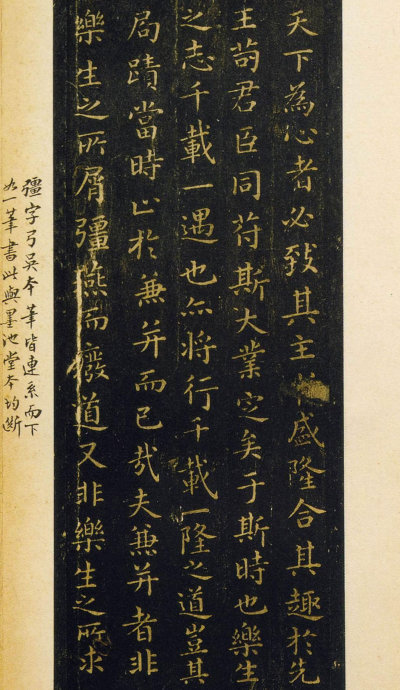 天下為心者必致其主於盛隆合其趣於先
王苟君臣同苻斯大業定矣于斯時也樂生
之志千載一遇也亦將行千載一隆之道豈其
局蹟當時止於兼并而已哉夫兼并者非
樂生之所屑彊燕而廢道又非樂生之所求
彊字弓吳本筆皆連系而下
如一筆書此與墨池堂本均斷